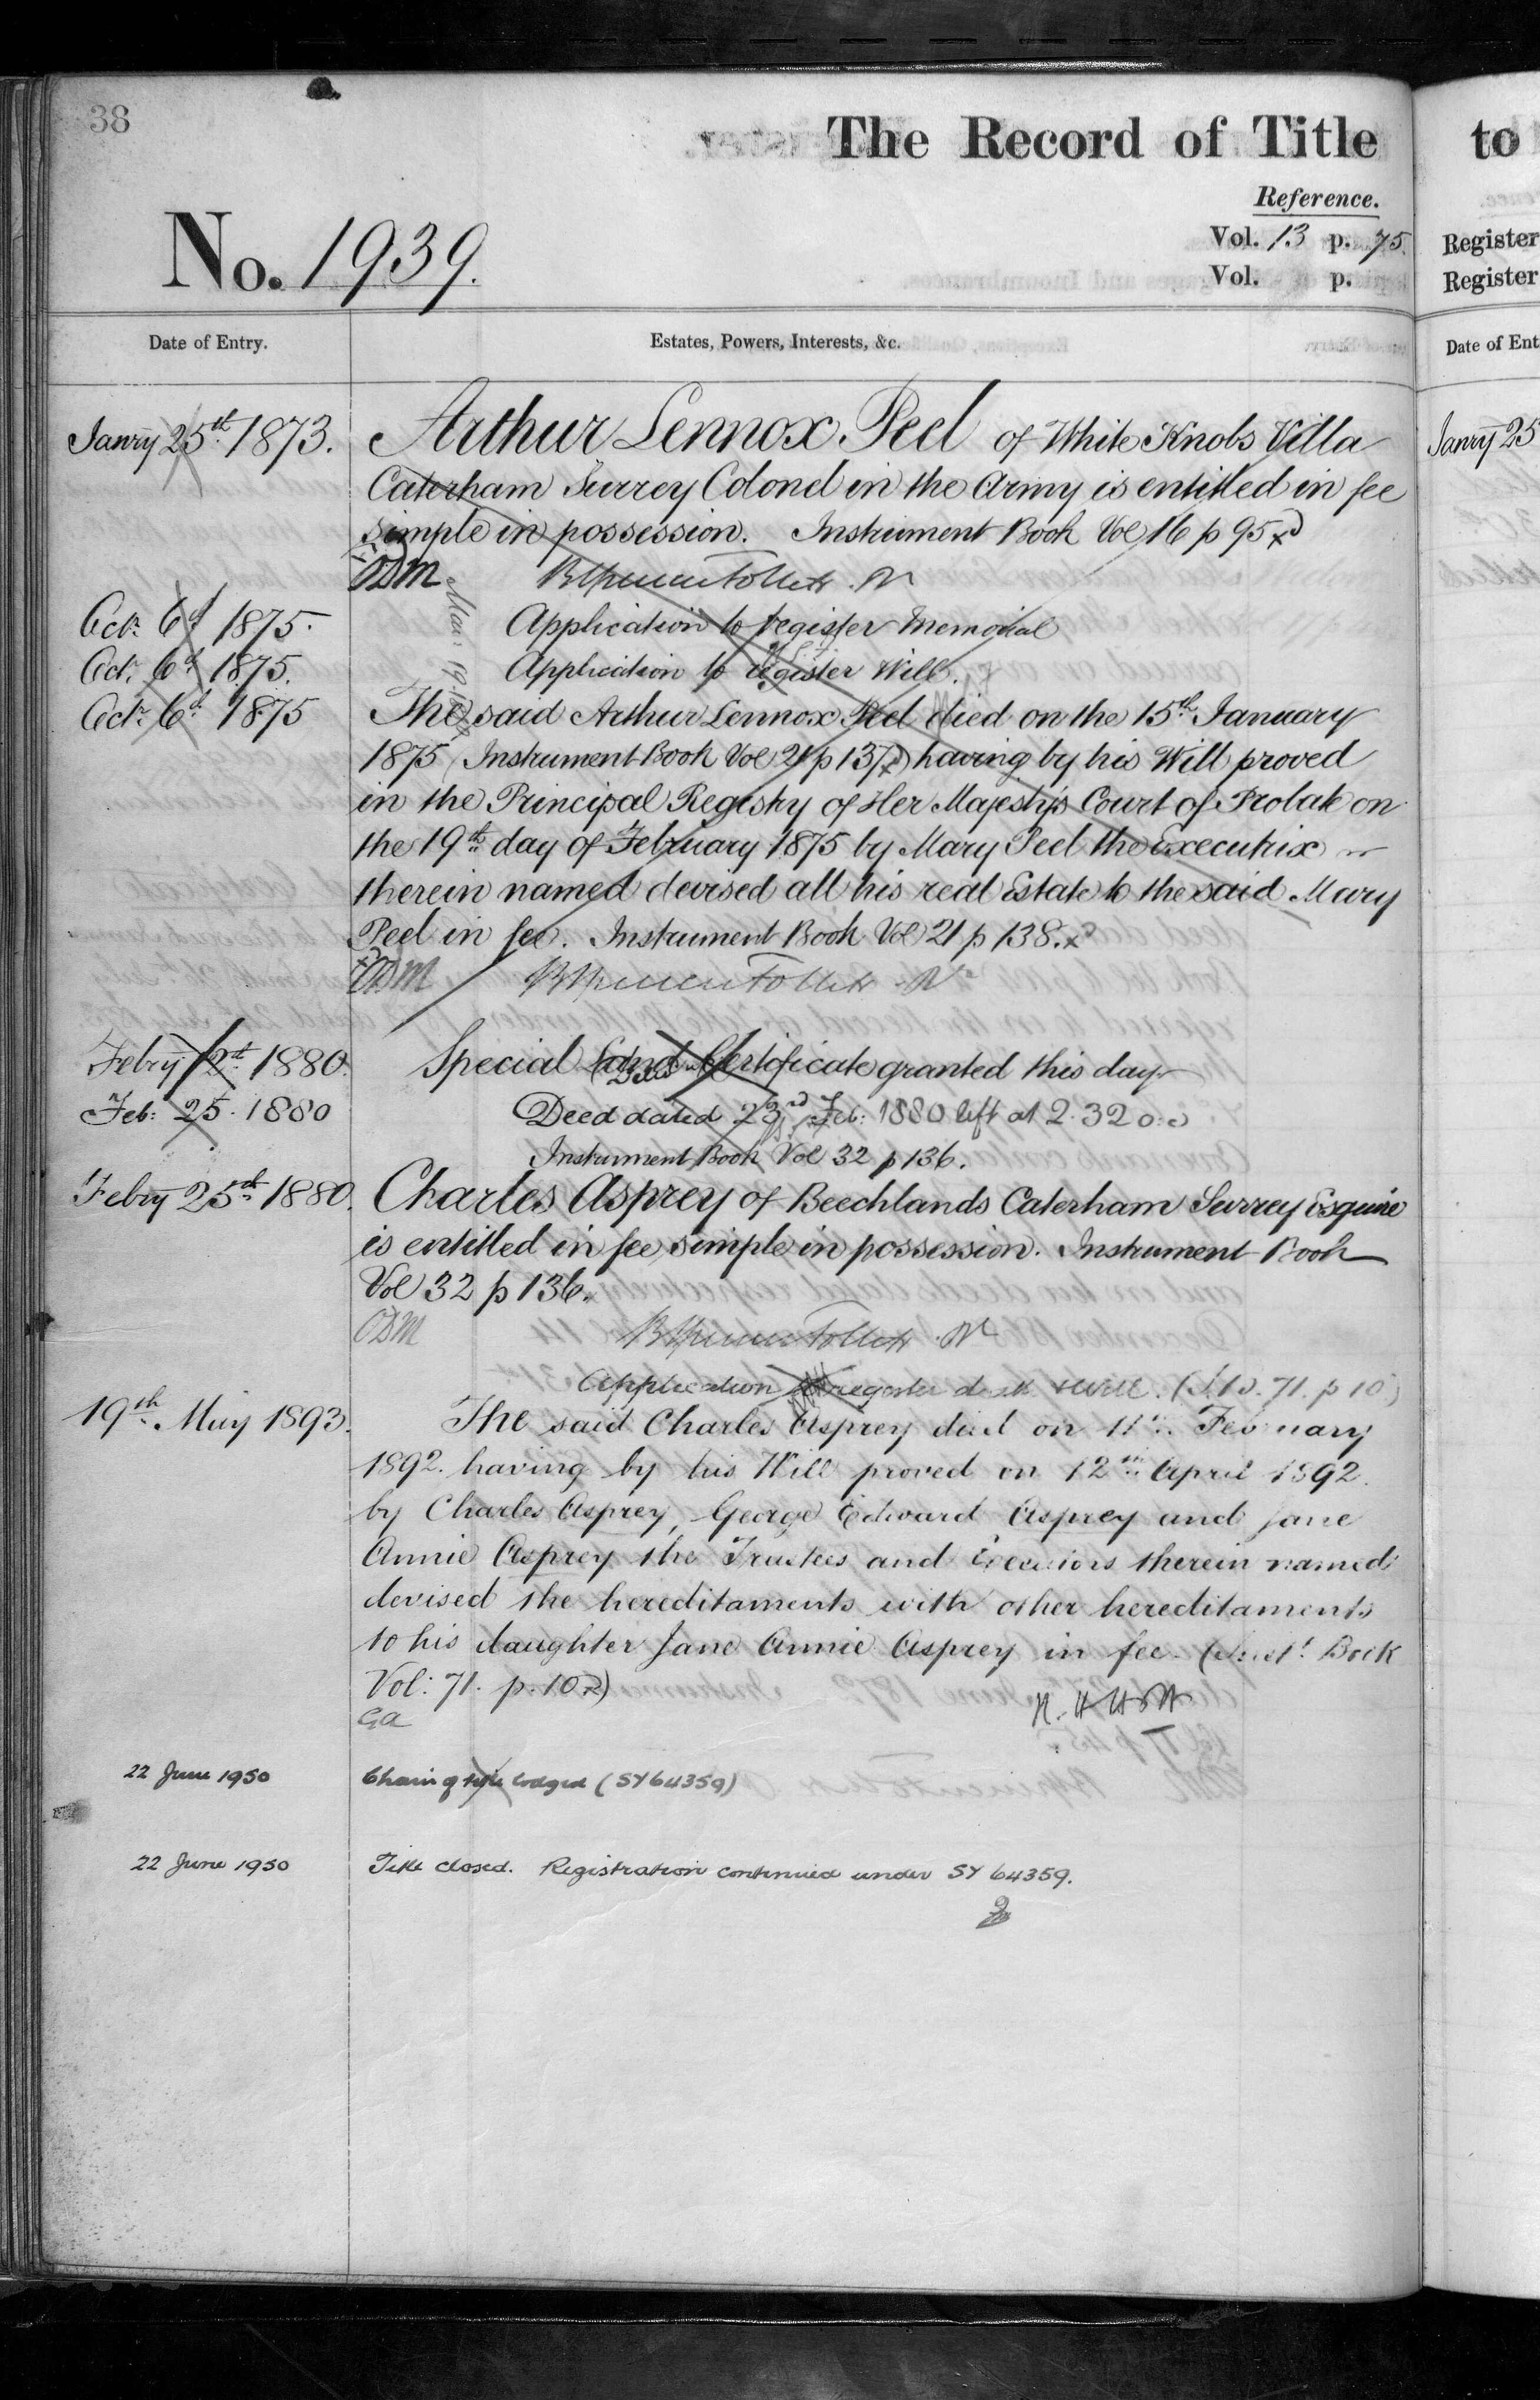 38
The Record of Title
to
Reference.
No. 1939.
Vol. 13 p. 75.
Register
Vol. p.
Register
Date of Entry.
Estates, Powers, Interests, &c.
Date of Ent
Janry 25th 1873.
Arthur Lennox Peel of White Knobs Villa
Janry 25
Caterham Surrey Colonel in the Army is entitled in fee
simple in possession. Instrument Book Vol 16 p 95
ODM
Octr. 6th 1875.
Application to register Memorial
Octr. 6th 1875.
Application to register Will.
Octr. 6th 1875
The said Arthur Lennox Peel died on the 15th January
1875 (Instrument Book Vol 21 p 137) having by his Will proved
in the Principal Registry of Her Majesty's Court of Probate on
the 19th day of February 1875 by Mary Peel the Executrix
therein named devised all his real Estate to the said Mary
Peel in fee. Instrument Book Vol 21 p 138.
ODM
Febry 12th 1880.
Special Land Certificate granted this day
Feb: 25. 1880
Deed dated 23rd Feb: 1880 left at 2.32
Instrument Book Vol 32 p 136.
Febry 25th 1880.
Charles Asprey of Beechlands Caterham Surrey Esquire
is entitled in fee simple in possession. Instrument Book
Vol 32 p 136.
ODM
Application to register death & Will. (I.B. 71. p 10)
19th May 1893.
The said Charles Asprey died on 11th February
1892. having by his Will proved on 12th April 1892.
by Charles Asprey, George Edward Asprey and Jane
Annie Asprey the Trustees and Executors therein named
devised the hereditaments with other hereditaments
to his daughter Jane Annie Asprey in fee. (Inst. Book
Vol: 71. p. 10)
GA
22 June 1950
Chain of title lodged (SY64359)
22 June 1950
Title closed. Registration continued under SY 64359.